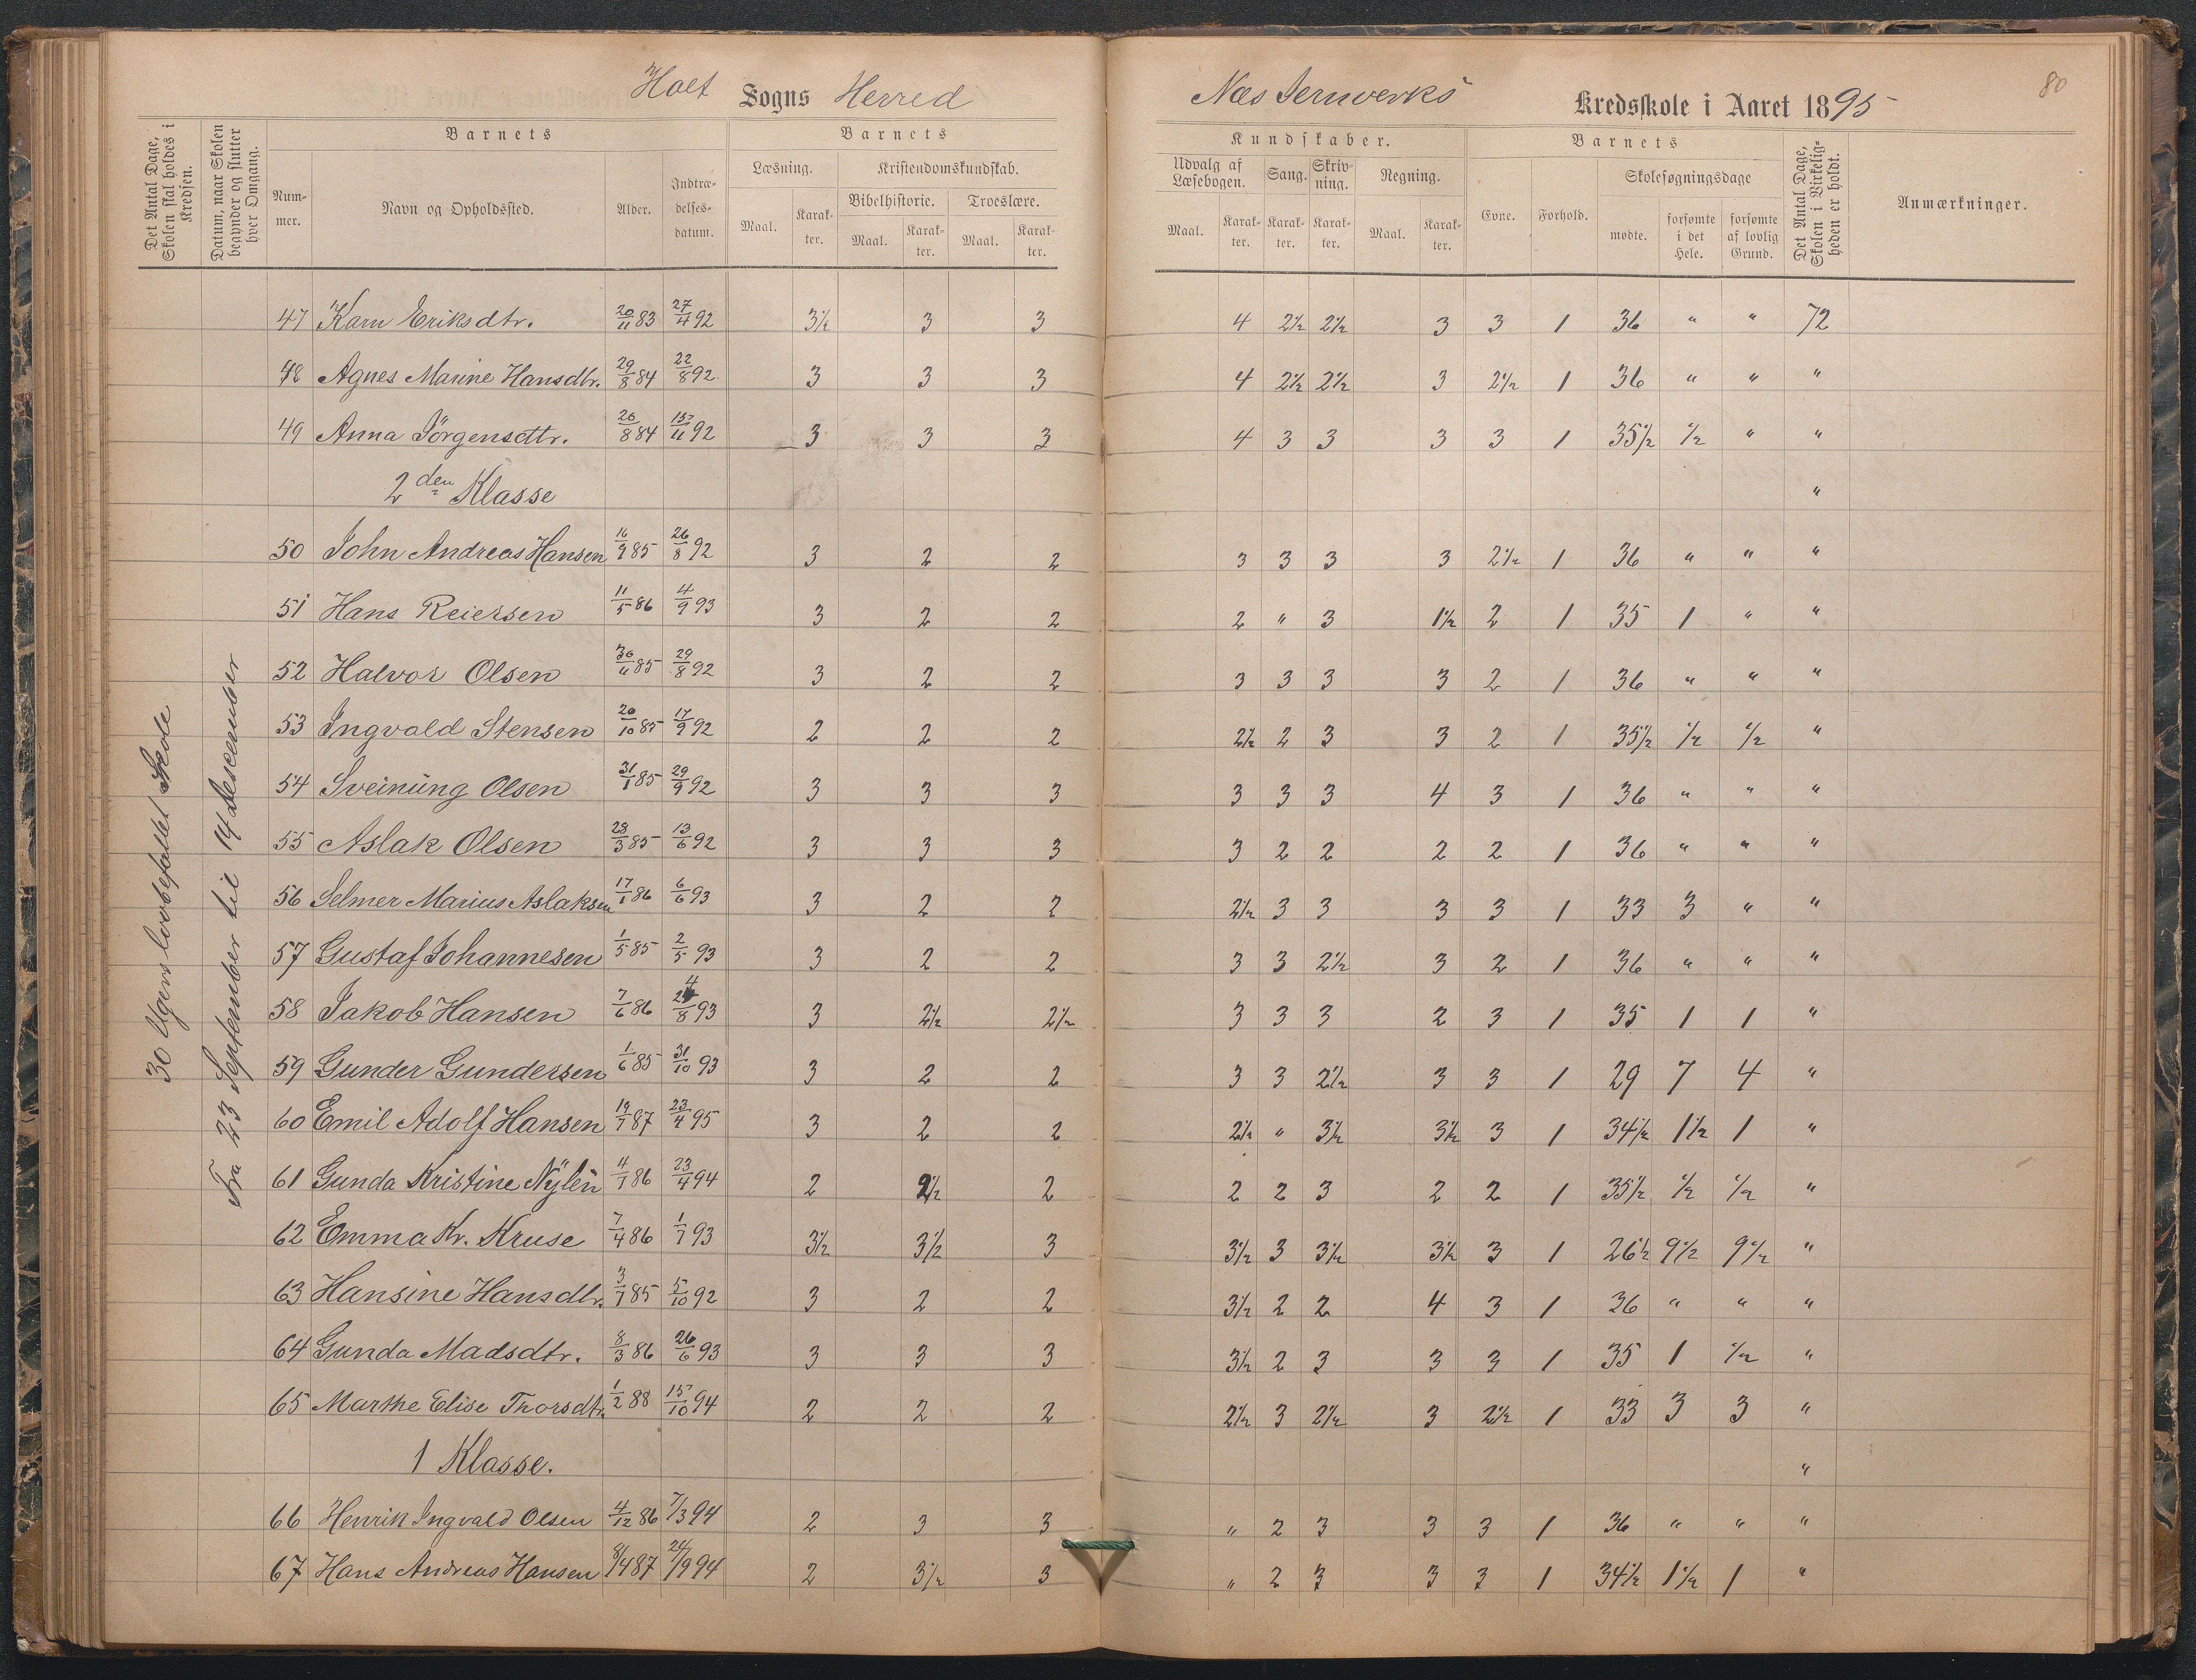 Holt Sogns Herred
Næs Jernverks Kredsskole i Aaret 1895
80
Det Antal Dage, Skolen skal holdes i Kredsen.
Datum, naar Skolen begynder og slutter hver Omgang.
Barnets
Barnets
Kundskaber.
Barnets
Det Antal Dage, Skolen i Virkeligheden er holdt.
Anmærkninger.
Num-mer.
Navn og Opholdssted.
Alder.
Indtræ-delses-datum.
Læsning.
Kristendomskundskab.
Bibelhistorie.
Troeslære.
Maal.
Karak-ter.
Maal.
Karak-ter.
Maal.
Karak-ter.
Udvalg af Læsebogen.
Sang.
Skriv-ning.
Regning.
Maal.
Karak-ter.
Karak-ter.
Karak-ter.
Maal.
Karak-ter.
Evne.
Forhold.
Skolesøgningsdage
mødte.
forsømte i det Hele.
forsømte af lovlig Grund.
30 Ugers lovbefallet Skole
Fra 23 September til 14 Desember
47 Karn Eriksdtr. 20/11 83 27/4 92 3½ 3 3 4 2½ 2½ 3 3 1 36 " " 72
48 Agnes Marine Hansdtr. 29/8 84 22/8 92 3 3 3 4 2½ 2½ 3 2½ 1 36 " " "
49 Anna Jörgensdtr. 26/8 84 15/11 92 3 3 3 4 3 3 3 3 1 35½ ½ " "
2den Klasse "
50 John Andreas Hansen 16/9 85 26/8 92 3 2 2 3 3 3 3 2½ 1 36 " " "
51 Hans Reiersen 11/5 86 4/9 93 3 2 2 2 " 3 1½ 2 1 35 1 " "
52 Halvor Olsen 30/11 85 29/8 92 3 2 2 3 3 3 3 2 1 36 " " "
53 Ingvald Stensen 20/10 85 17/9 92 2 2 2 2½ 2 3 3 2 1 35½ ½ ½ "
54 Sveinung Olsen 31/1 85 29/9 92 3 3 3 3 3 3 4 3 1 36 " " "
55 Aslak Olsen 28/3 85 13/6 92 3 3 3 3 2 2 2 2 1 36 " " "
56 Selmer Marius Aslaksen 17/1 86 6/6 93 3 2 2 2½ 3 3 3 3 1 33 3 " "
57 Gustaf Johannesen 1/5 85 2/5 93 3 2 2 3 3 2½ 3 2 1 36 " " "
58 Jakob Hansen 7/6 86 24/8 93 3 2½ 2½ 3 3 3 2 3 1 35 1 1 "
59 Gunder Gundersen 1/6 85 31/10 93 3 2 2 3 3 2½ 3 3 1 29 7 4 "
60 Emil Adolf Hansen 19/7 87 23/4 95 3 2 2 2½ " 3½ 3½ 3 1 34½ 1½ 1 "
61 Gunda Kristine Nylén 4/7 86 23/4 94 2 2½ 2 2 2 3 2 2 1 35½ ½ ½ "
62 Emma Kr. Kruse 7/4 86 1/7 93 3½ 3½ 3 3½ 3 3½ 3½ 3 1 26½ 9½ 9½ "
63 Hansine Hansdtr. 3/7 85 5/10 92 3 2 2 3½ 2 2 4 3 1 36 " " "
64 Gunda Madsdtr. 8/3 86 26/6 93 3 3 3 3½ 2 3 3 3 1 35 1 ½ "
65 Marthe Elise Thorsdtr. 1/2 88 15/10 94 2 2 2 2½ 3 2½ 3 2½ 1 33 3 3 "
1 Klasse. "
66 Henrik Ingvald Olsen 4/12 86 7/3 94 2 3 3 " 2 3 3 3 1 36 " " "
67 Hans Andreas Hansen 8/4 87 24/9 94 2 3½ 3 " 2 3 3 3 1 34½ 1½ 1 "